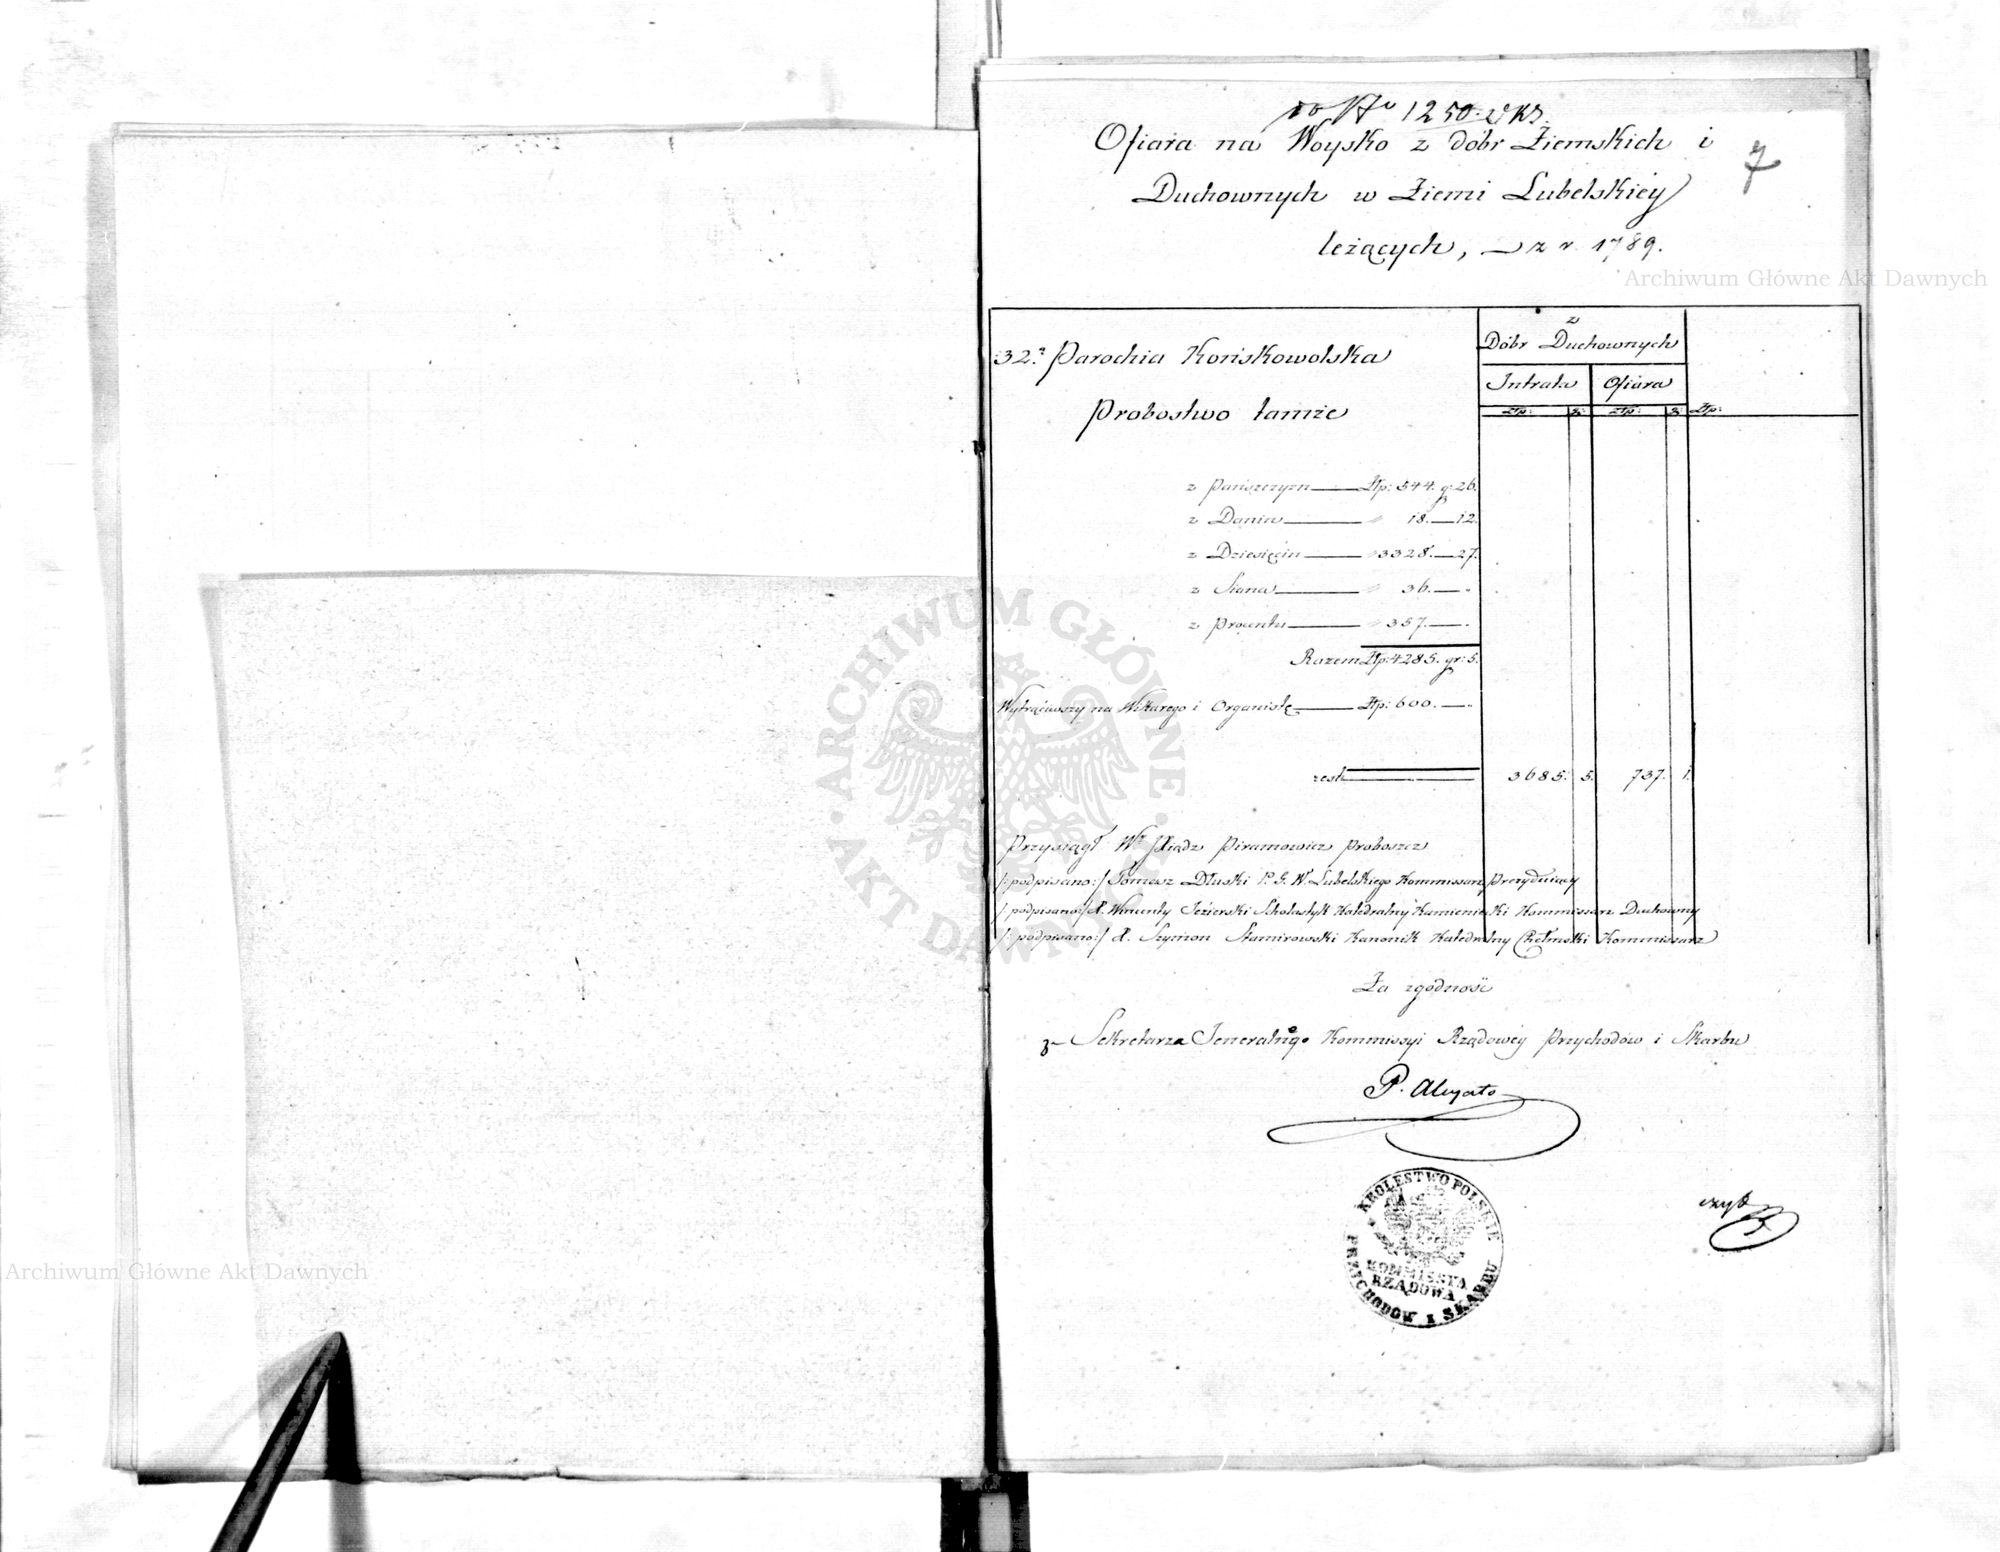 do N° 1250
Ofiara na Woysko z dóbr Ziemskich i
7
Duchownych w Ziemi Lubelskiéy
leżących, — z r. 1789.
Archiwum Główne Akt Dawnych
z
Dóbr Duchownych
32. Parochia Końskowolska
Intrata Ofiara
Złp: g: Złp: g: Złp:
Probostwo tamże
z Pańszczyzn — Złp: 544. g: 26.
z Danin — " 18. — 12.
z Dziesięcin — " 3328. — 27.
z Siana — " 36. — "
z Procentu — " 357. — "
Razem Złp: 4285. gr: 5.
Wytrąciwszy na Wikarego i Organistę — Złp: 600. — "
reszt 3685. 5. 737. 1.
Przysiągł Wy Xiądz Piramowicz Proboszcz
/: podpisano:/ Tomasz Dłuski P. G. W. Lubelskiego Kommissarz Prezyduiący
/: podpisano:/ X. Wincenty Jezierski Scholastyk Katedralny Kamieniecki Kommissarz Duchowny
/: podpisano:/ X. Szymon Stamirowski Kanonik Katedralny Chełmski Kommissarz
Za zgodność
z Sekretarza Jeneralnego Kommissyi Rządowéy Przychodów i Skarbu
P. Alegato
KRÓLESTWO POLSKIE
KOMMISSYA
RZĄDOWA
PRZYCHODÓW I SKARBU
Archiwum Główne Akt Dawnych
ARCHIWUM GŁÓWNE
AKT DAWNYCH